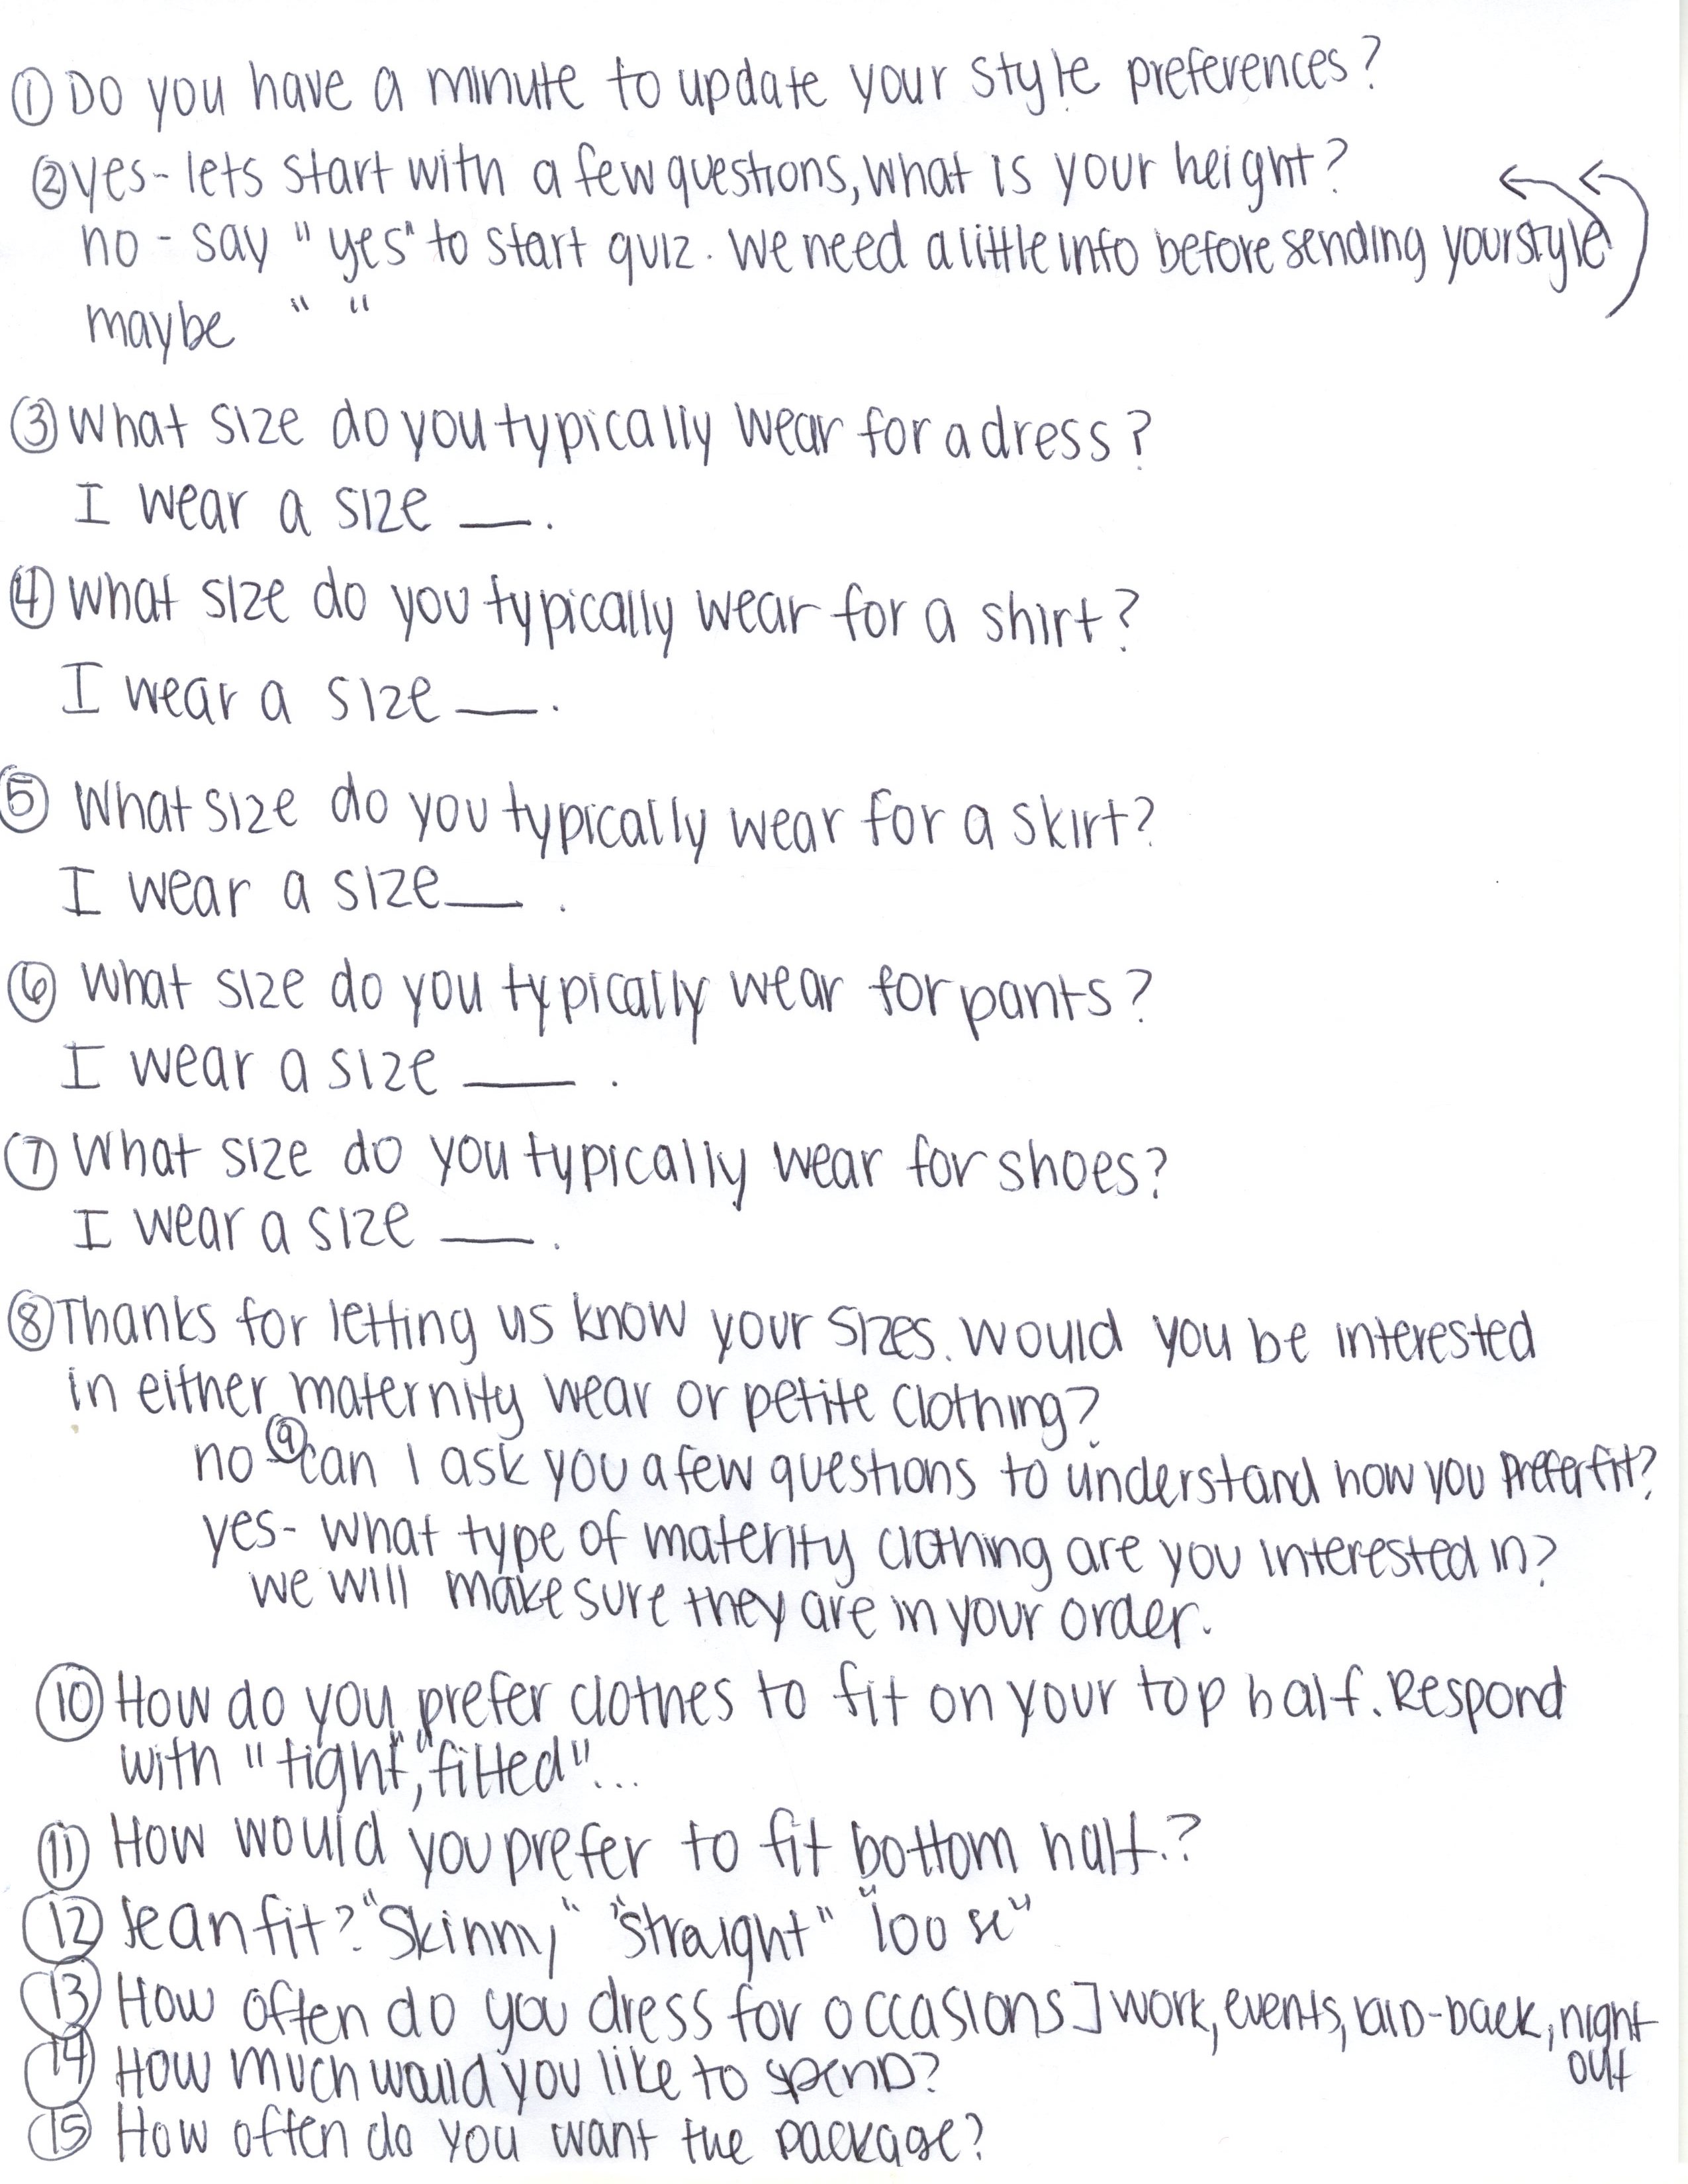 ① Do you have a minute to update your style preferences?
② yes - lets start with a few questions, what is your height?
no - say "yes" to start quiz. We need a little info before sending your style
maybe " "
③ What size do you typically wear for a dress?
I wear a size __.
④ What size do you typically wear for a shirt?
I wear a size __.
⑤ What size do you typically wear for a skirt?
I wear a size __.
⑥ What size do you typically wear for pants?
I wear a size __.
⑦ What size do you typically wear for shoes?
I wear a size __.
⑧ Thanks for letting us know your sizes. Would you be interested
in either maternity wear or petite clothing?
no ⑨ can I ask you a few questions to understand how you prefer fit?
yes - what type of materity clothing are you interested in?
we will make sure they are in your order.
⑩ How do you prefer clothes to fit on your top half. Respond
with "tight", "fitted"...
⑪ How would you prefer to fit bottom half.?
⑫ Jean fit? "Skinny" "straight" "loose"
⑬ How often do you dress for occasions] work, events, laid-back, night
out
⑭ How much would you like to spend?
⑮ How often do you want the package?